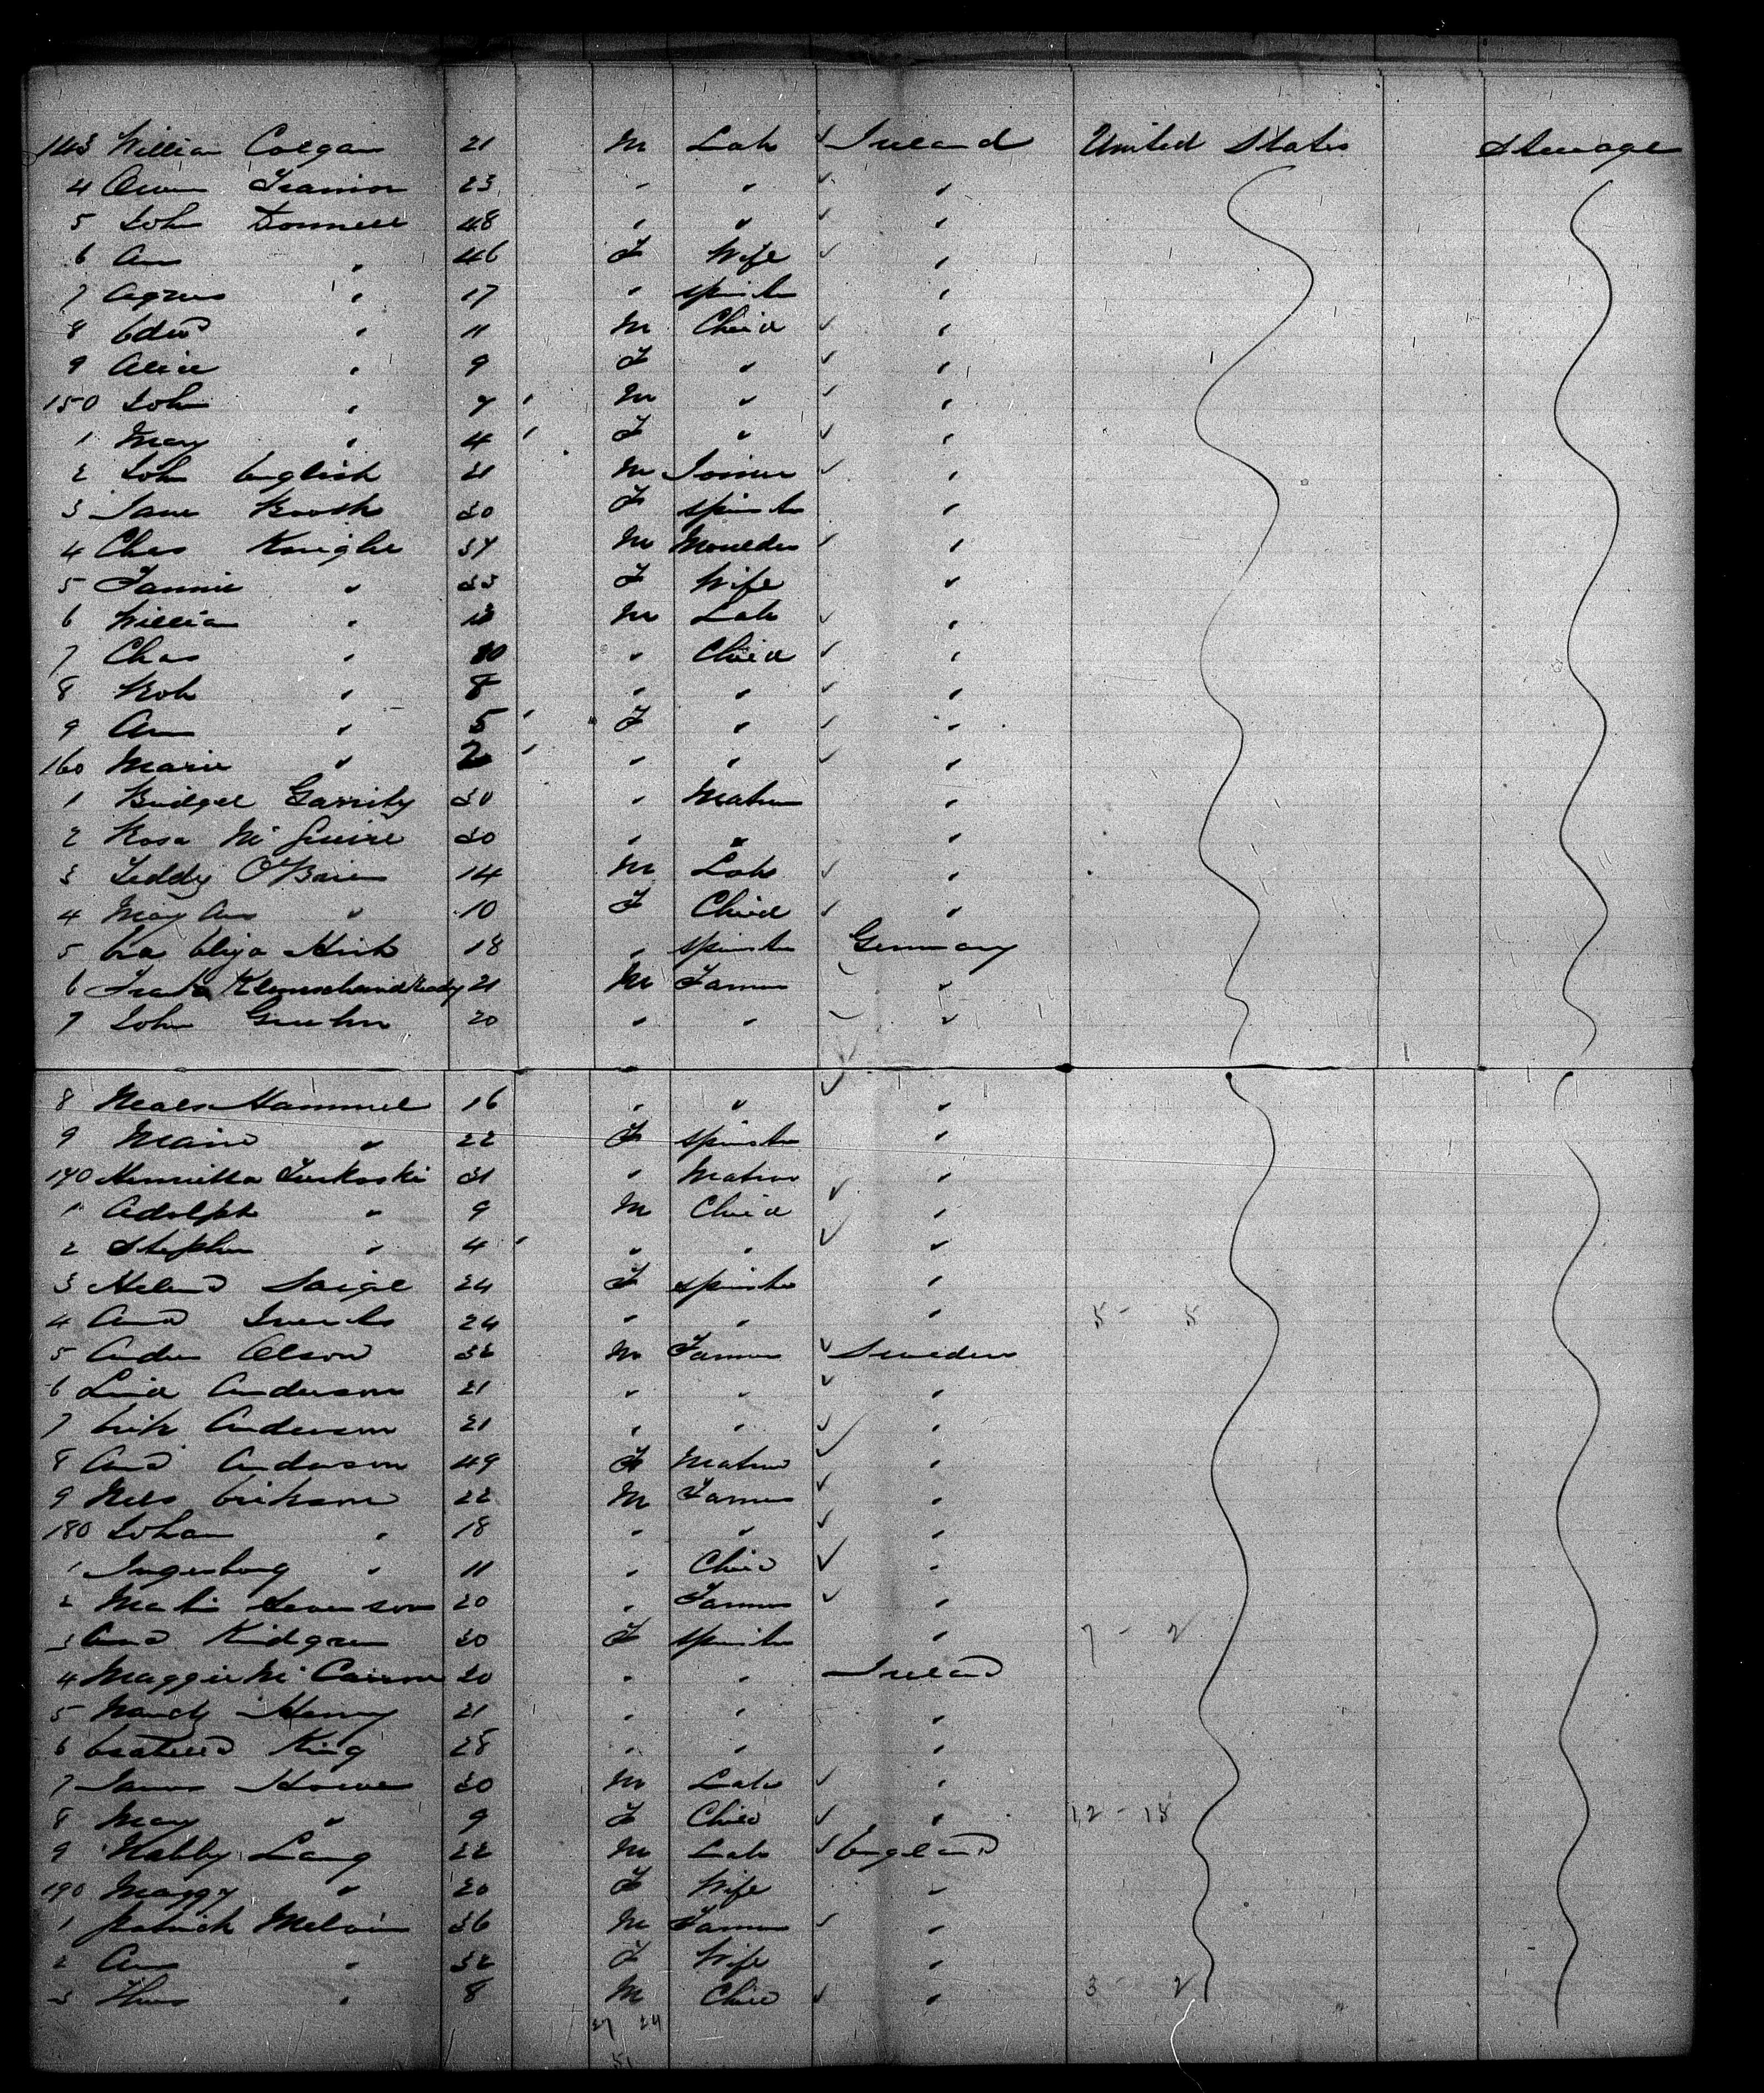 143 William Colgan 21 M Lab ✓ Ireland United States Steerage
4 Owen Trainor 23 " " ✓ "
5 John Donnell 48 " " ✓ "
6 Ann " 46 F Wife ✓ "
7 Agnes " 17 " spinster "
8 Edwd " 11 M Child ✓ "
9 Alice " 9 F " ✓ "
150 John " 7 M " ✓ "
1 Mary " 4 F " ✓ "
2 John English 21 M Joiner ✓ "
3 Jane Booth 30 F spinster "
4 Chas Knight 34 M Moulder ✓ "
5 Fannie " 33 F Wife "
6 William " 13 M Lab ✓ "
7 Chas " 10 " Child ✓ "
8 Rob " 8 " " ✓ "
9 Ann " 5 F " ✓ "
160 Marie " 2 " " ✓ "
1 Bridget Garrity 30 " Matron "
2 Rosa McGuire 30 " " "
3 Teddy O'Brien 14 M Lab ✓ "
4 May Ann " 10 F Child ✓ "
5 Eliza 18 " spinster Germany
6 21 M Farmer "
7 John Gruhn 20 " " "
8 Hammel 16 " " ✓ "
9 " 22 F spinster "
170 Henrietta 31 " Matron "
1 Adolph " 9 M Child ✓ "
2 Stephen " 4 " " ✓ "
3 24 F spinster "
4 24 " " " 5 - 5
5 Olson 32 M Farmer ✓ Sweden
6 Anderson 21 " " ✓ "
7 Erik Anderson 21 " " ✓ "
8 Anderson 49 F Matron ✓ "
9 Nels Erikson 22 M Farmer ✓ "
180 Johan " 18 " " ✓ "
1 Ingeborg " 11 " Child ✓ "
2 20 " Farmer ✓ "
3 Kidgren 30 F spinster " 7 - 2
4 Maggie 20 " " Ireland
5 Henry 21 " " "
6 King 28 " " "
7 James Howe 30 M Lab ✓ "
8 May " 9 F Child ✓ " 12 - 18
9 Lang 22 M Lab ✓ England
190 Maggy " 20 F Wife "
1 Patrick Melvin 36 M Farmer ✓ "
2 Ann " 32 F Wife "
3 Thos " 8 M Child ✓ " 3 - 2
27 24
51